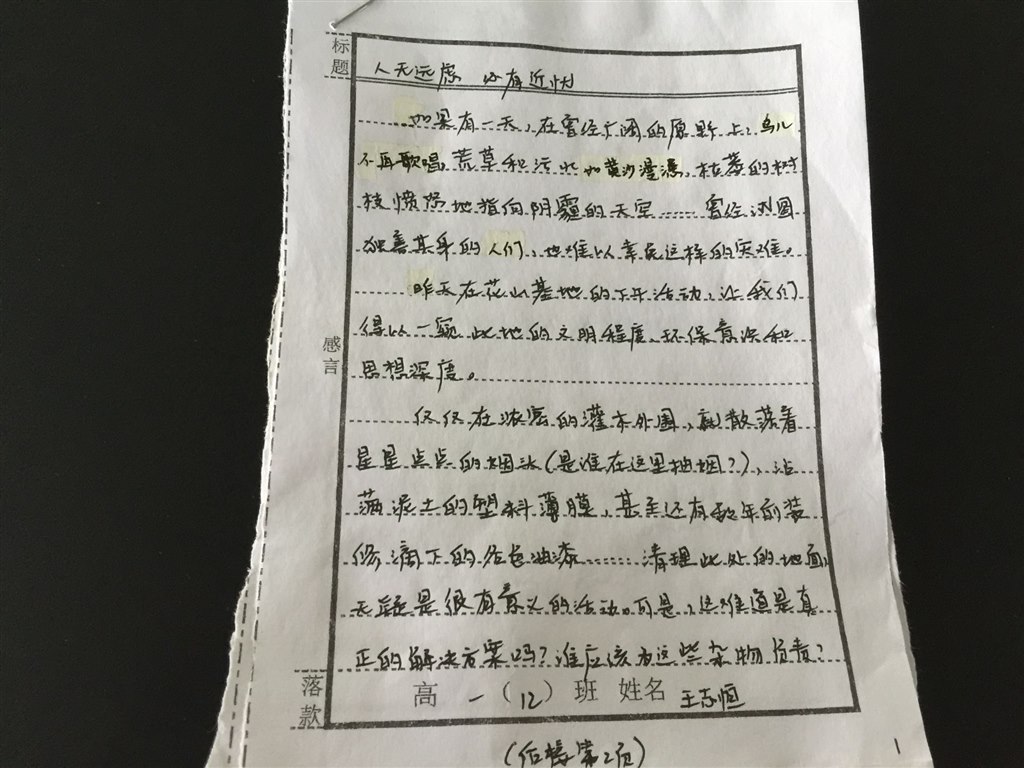 标题
人无远虑 必有近忧
如果有一天,在曾经广阔的原野上,鸟儿
不再歌唱,荒草和污水如黄沙漫漶,枯萎的树
枝愤怒地指向阴霾的天空……曾经试图
独善其身的人们,也难以幸免这样的灾难。
昨天在花山基地的下午活动,让我们
得以一窥此地的文明程度、环保意识和
思想深度。
感言
仅仅在浓密的灌木外围,就散落着
星星点点的烟头(是谁在这里抽烟?),沾
满泥土的塑料薄膜,甚至还有数年前装
修滴下的各色油漆……清理此处的地面,
无疑是很有意义的活动。可是,这难道是真
正的解决方案吗?谁应该为这些杂物负责?
落款
高一(12)班 姓名 王志恒
(后接第2页)
1